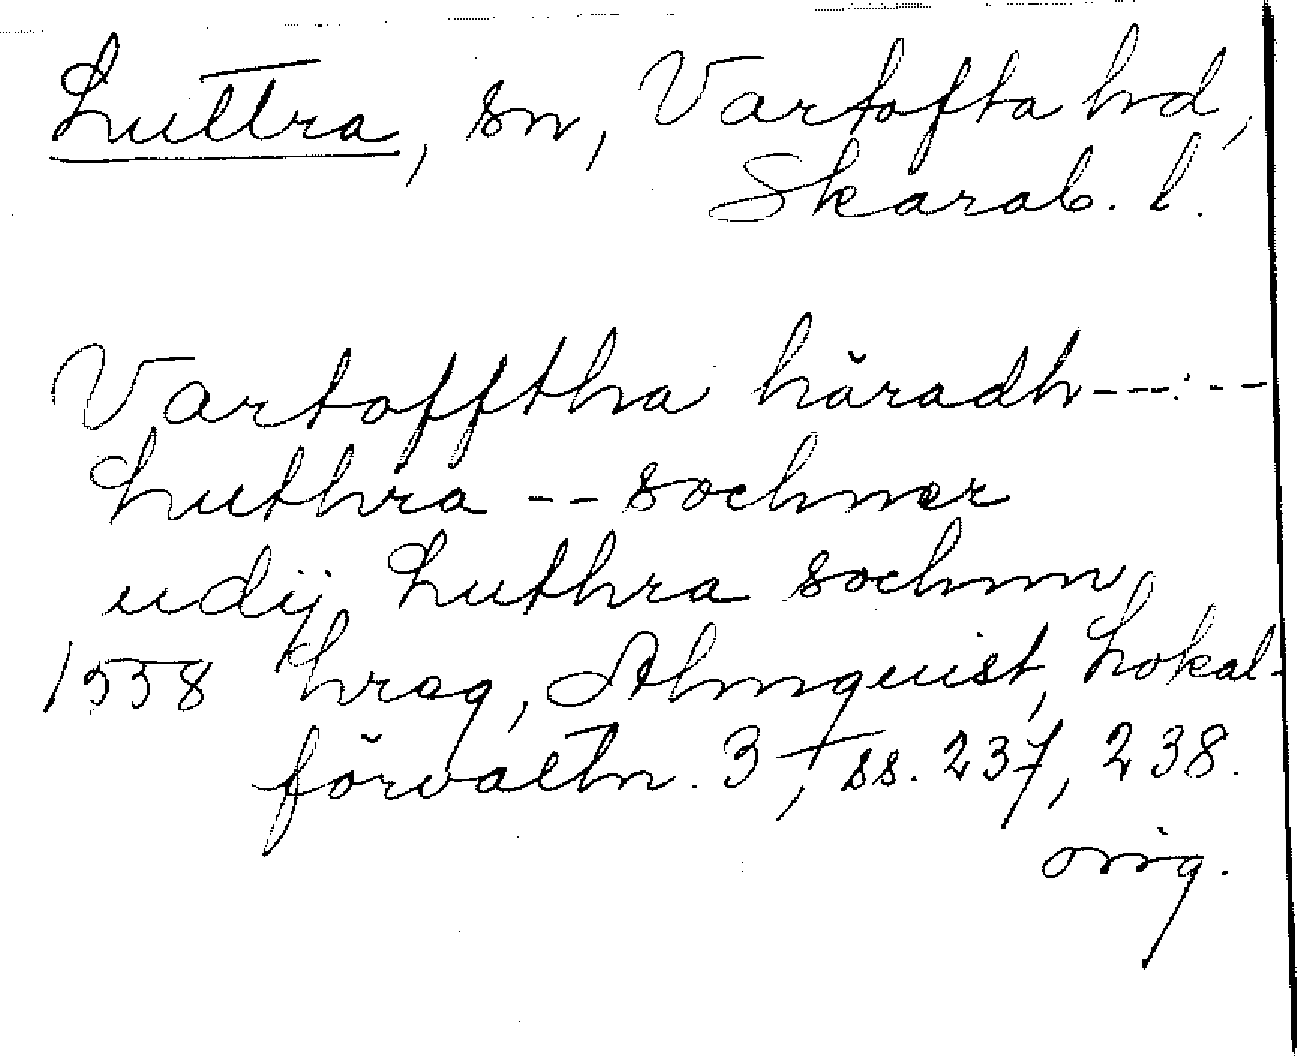 Luttra, sn, Vartofta hd,
Skarab. l.
Vartofftha häradh---:--
Luthra -- sochner
udij Luthra sochnn
1558 hrag, Almquist, Lokal-
förvaltn. 3, ss. 237, 238.
orig.